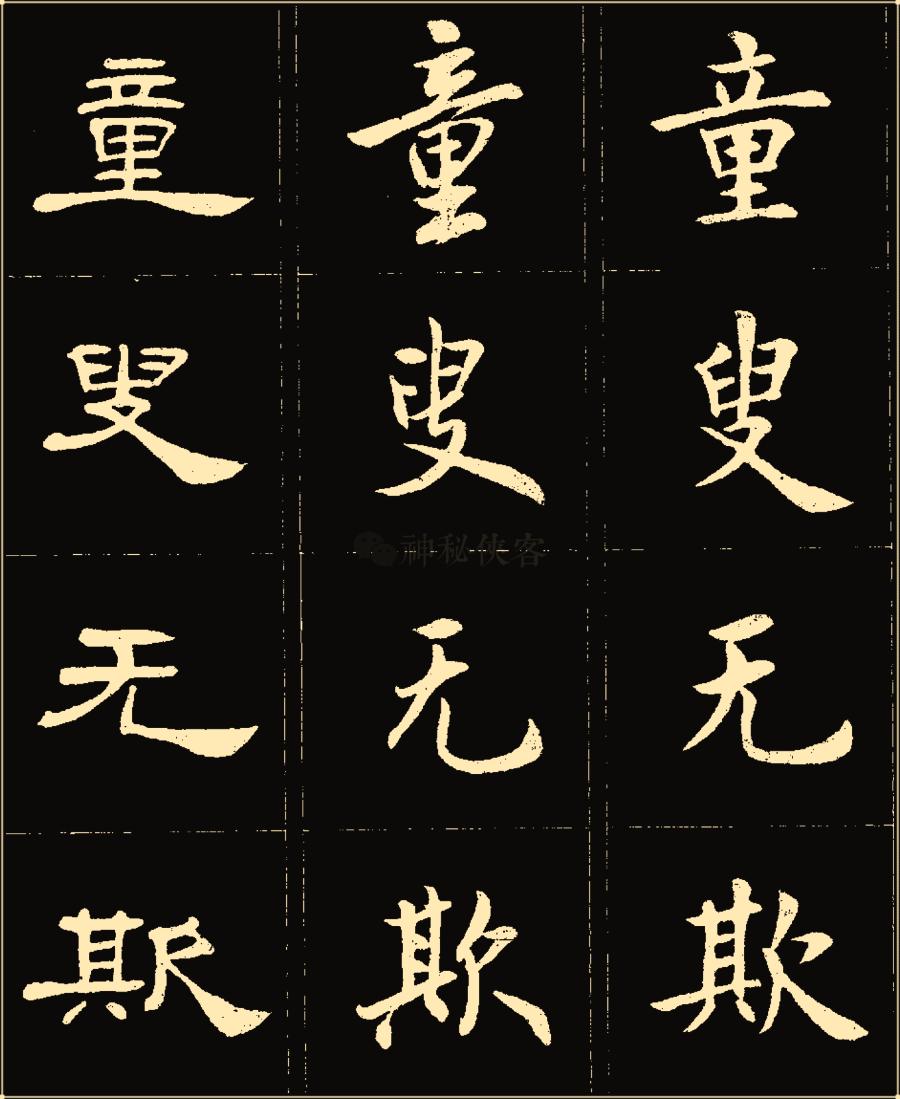 童 童 童
叟 叟 叟
神秘侠客
无 无 无
欺 欺 欺